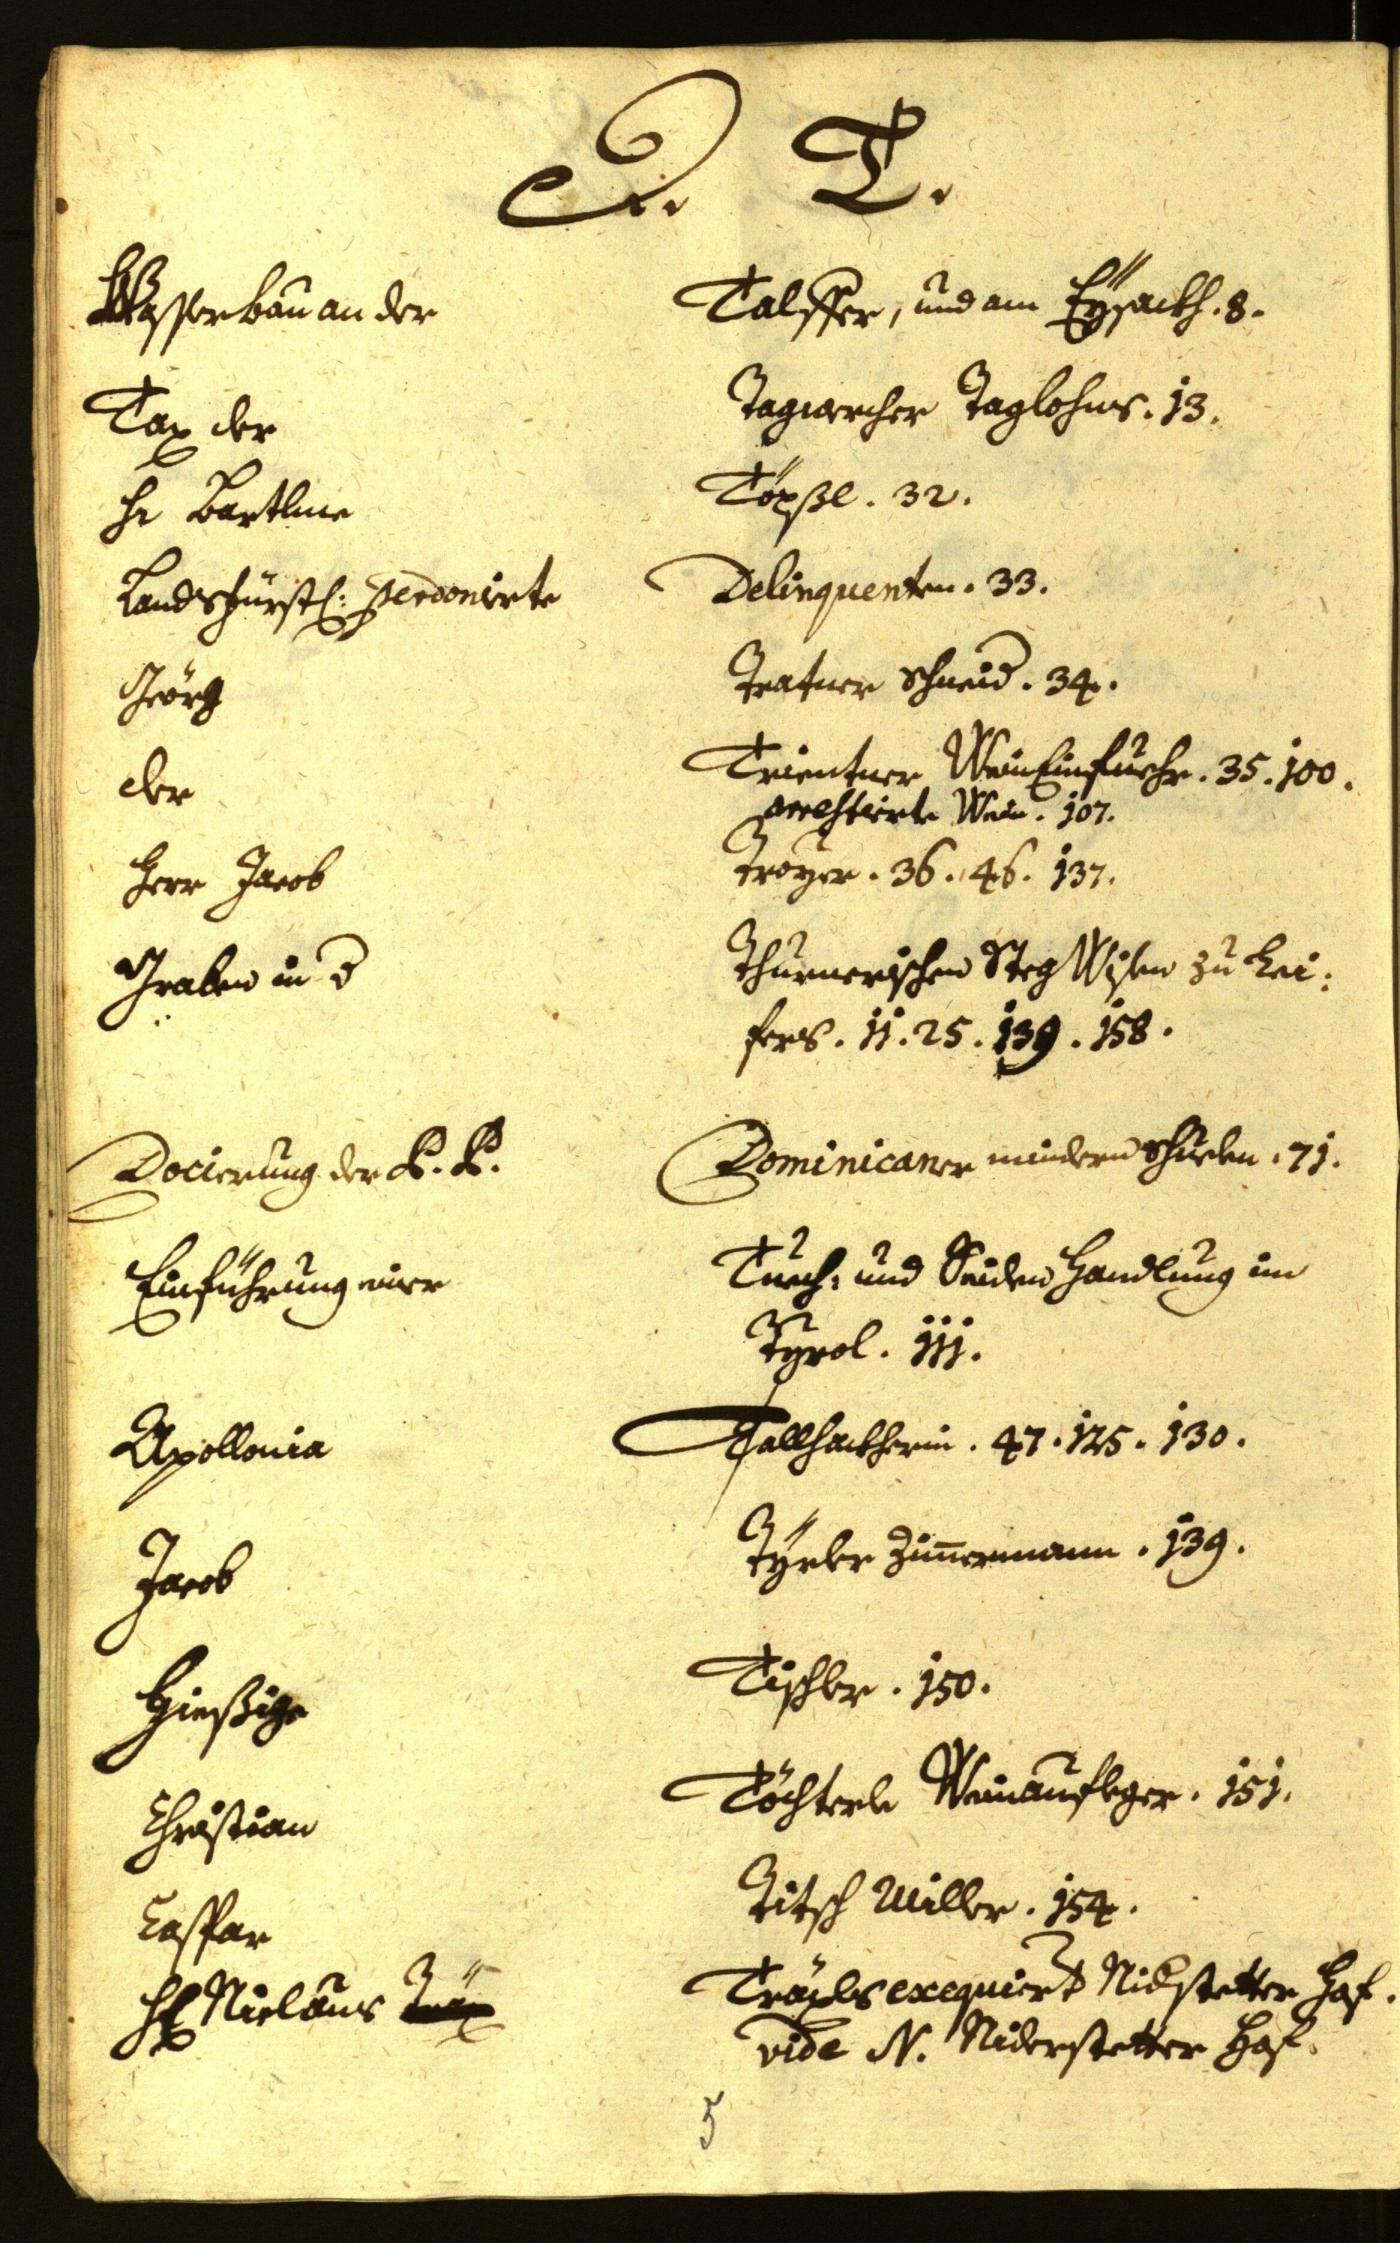 D. T.
Wasserbau an der Talffer, und am Eÿsackh. 8.
Tax der Tagwercher Taglohns. 13.
Hr Bartlme Töpßl. 32.
Landsfürstl: perdonirte Delinquenten. 33.
Geörg Tratner Schneid. 34.
der Trientner Wein Einfuehr. 35. 100.
arrestierte Wein. 107.
Herr Jacob Troyer. 36. 46. 137.
Graben in d Thurnerischen Steg Wisen zu Lei:
fers. 11. 25. 139. 158.
Docierung der P. P. Dominicaner mindern Schuelen. 71.
Einführung einer Tuech: und Seiden Handlung im
Tyrol. 111.
Apollonia Tallhackherin. 47. 125. 130.
Jacob Tÿrler Zimermann. 139.
Hießige Tischler. 150.
Christian Töchterle Weinaufleger. 151.
Casspar Titsch Miller. 154.
Hr Niclaus Träxls exequiert Niderstetter Hof.
vide N. Niderstetter Hof.
5